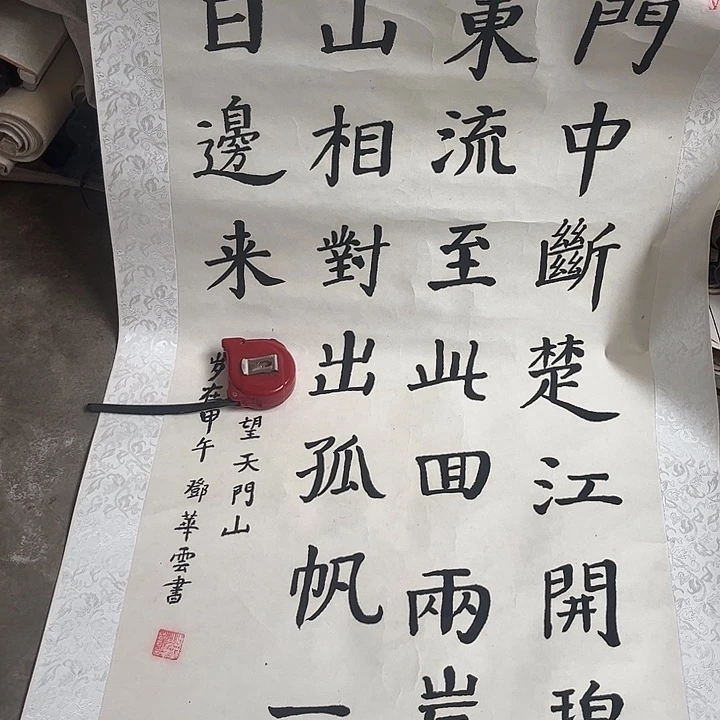 門中斷楚江開碧
東流至此回兩岸
山相對出孤帆一
日邊来
望天門山
岁在甲午 鄧華雲書